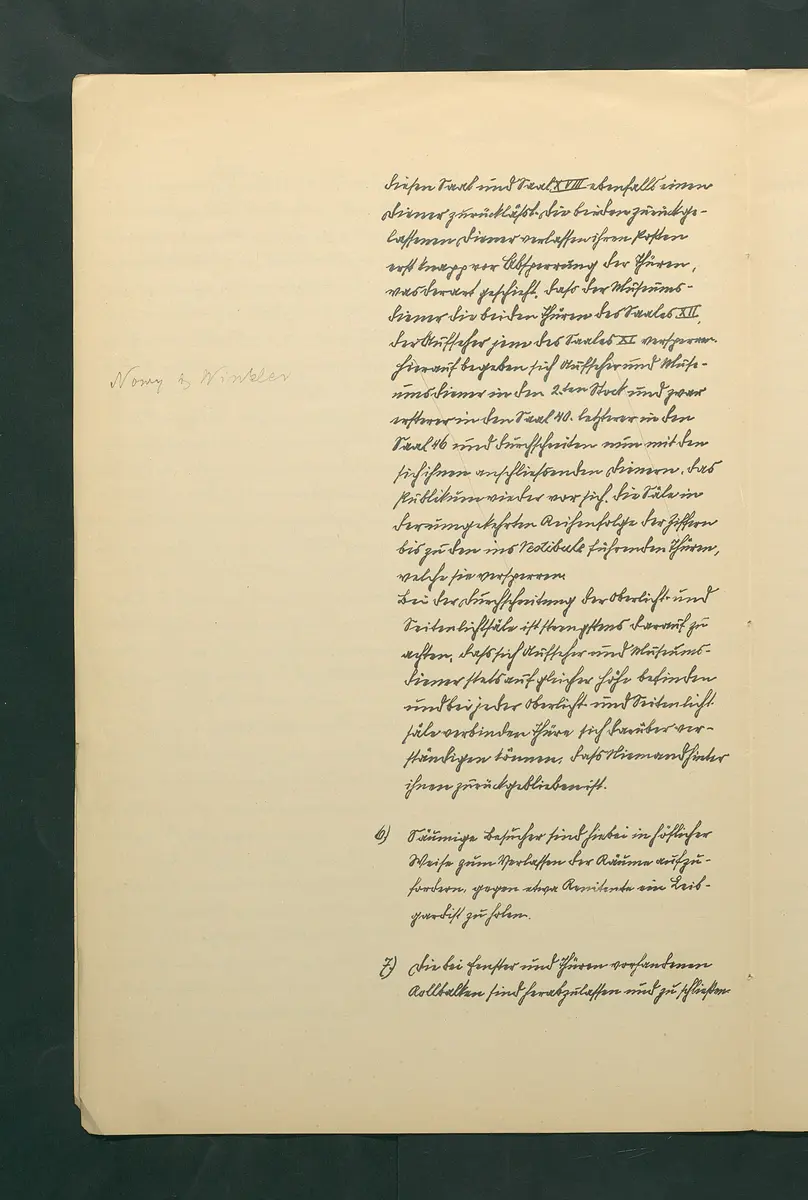 diesen Saal und Saal XVIII ebenfalls einen
Diener zurückläßt. Die beiden zurückge-
lassenen Diener verlassen ihren Posten
erst knapp vor Absperrung der Thüren,
was derart geschieht, dass der Museums-
diener die beiden Thüren des Saales XII,
der Aufseher jene des Saales XI versperren.
Hierauf begeben sich Aufseher und Muse-
umsdiener in den 2ten Stock und zwar
ersterer in den Saal 40. letzterer in den
Saal 46 und durchschreiten nun mit den
sich ihnen anschließenden Dienern, das
Publikum wieder vor sich, die Säle in
der umgekehrten Reihenfolge der Ziffern
bis zu den ins Vestibule führenden Thüren,
welche sie versperren.
Nowy & Winkler
Bei der Durchschreitung der Oberlicht- und
Seitenlichtsäle ist strengstens darauf zu
achten, dass sich Aufseher und Museums-
diener stets auf gleicher Höhe befinden
und bei jeder Oberlicht- und Seitenlicht-
säle verbinden Thüre sich darüber ver-
ständigen können, dass Niemand hinter
ihnen zurückgeblieben ist.
6.) Säumige Besucher sind hiebei in höflicher
Weise zum Verlassen der Räume aufzu-
fordern, gegen etwa Renitente ein Leib-
gardist zu holen.
7.) Die bei Fenster und Thüren vorhandenen
Rollbalken sind herabzulassen und zu schließen